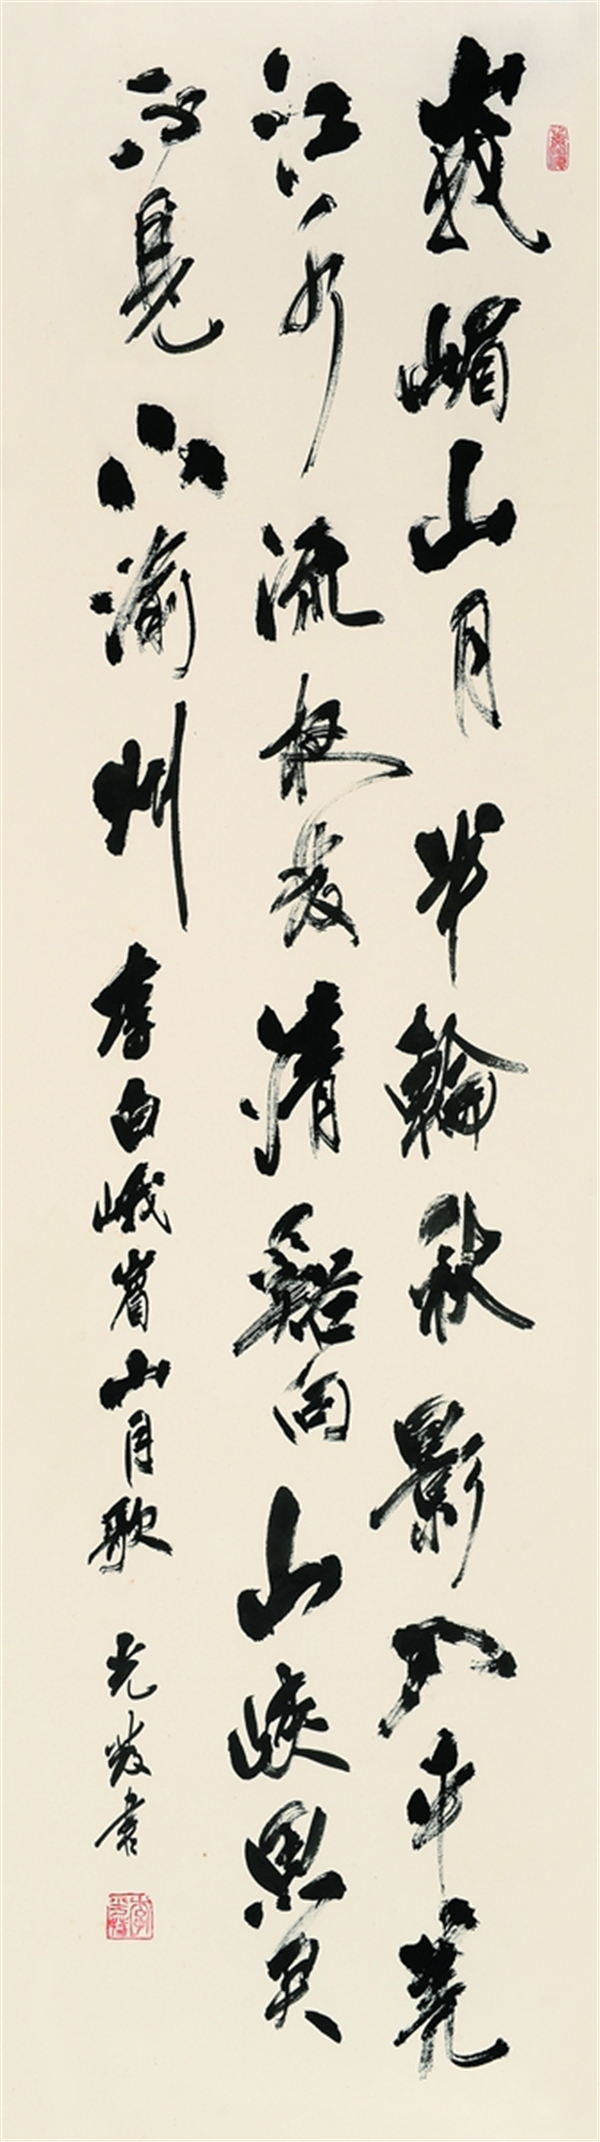 峨嵋山月半輪秋影入平羌
江水流夜發清谿向山峽思君
不見下渝州 李白峨嵋山月歌 光發書